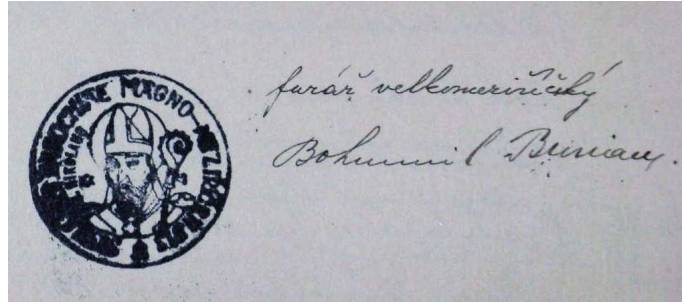 PAROCHIAE MAGNO-
NIKOLAUS
farář velkomeziříčský
Bohumil Burian.